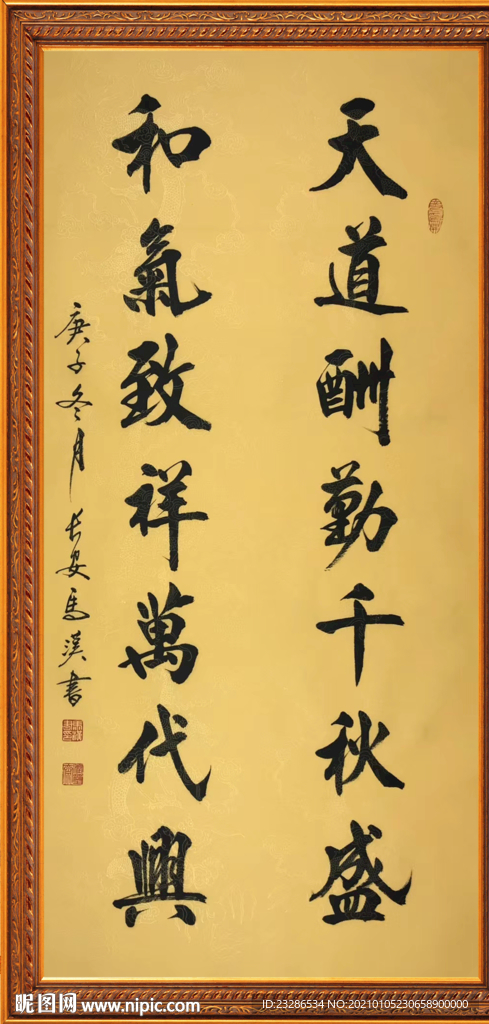 天道酬勤千秋盛
和氣致祥萬代興
庚子冬月長安馬漢書
昵图网 www.nipic.com
ID:23286534 NO:20210105230658900000